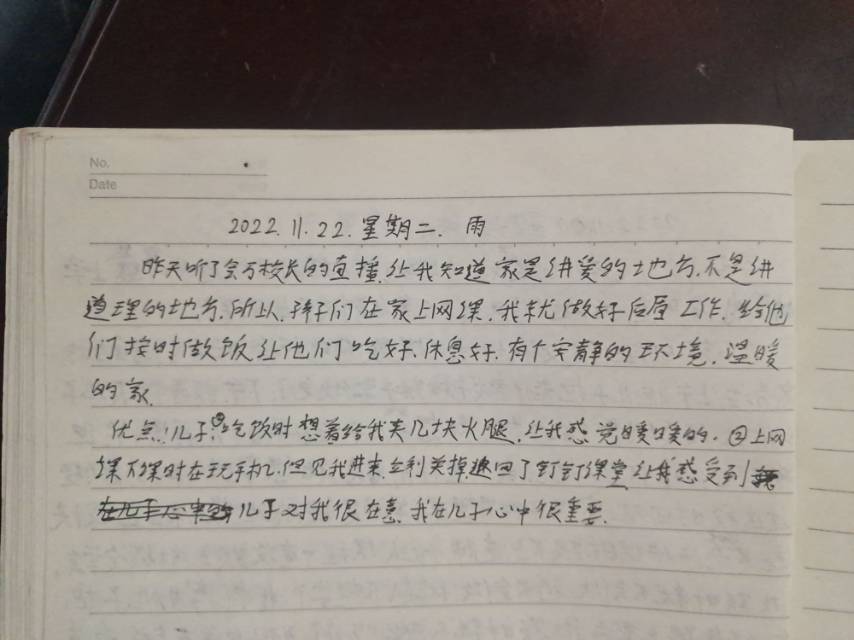 No.
Date
2022.11.22.星期二.雨
昨天听了校长的直播,让我知道家是讲爱的地方,不是讲
道理的地方,所以,孩子们在家上网课,我就做好后勤工作,给他
们按时做饭让他们吃好,休息好,有个安静的环境,温暖
的家.
优点:儿子①吃饭时想着给我夹几块火腿,让我感觉暖暖的.②上网
课下课时在玩手机,但见我进来,立刻关掉,退回了钉钉课堂让我感受到
儿子对我很在意,我在儿子心中很重要.